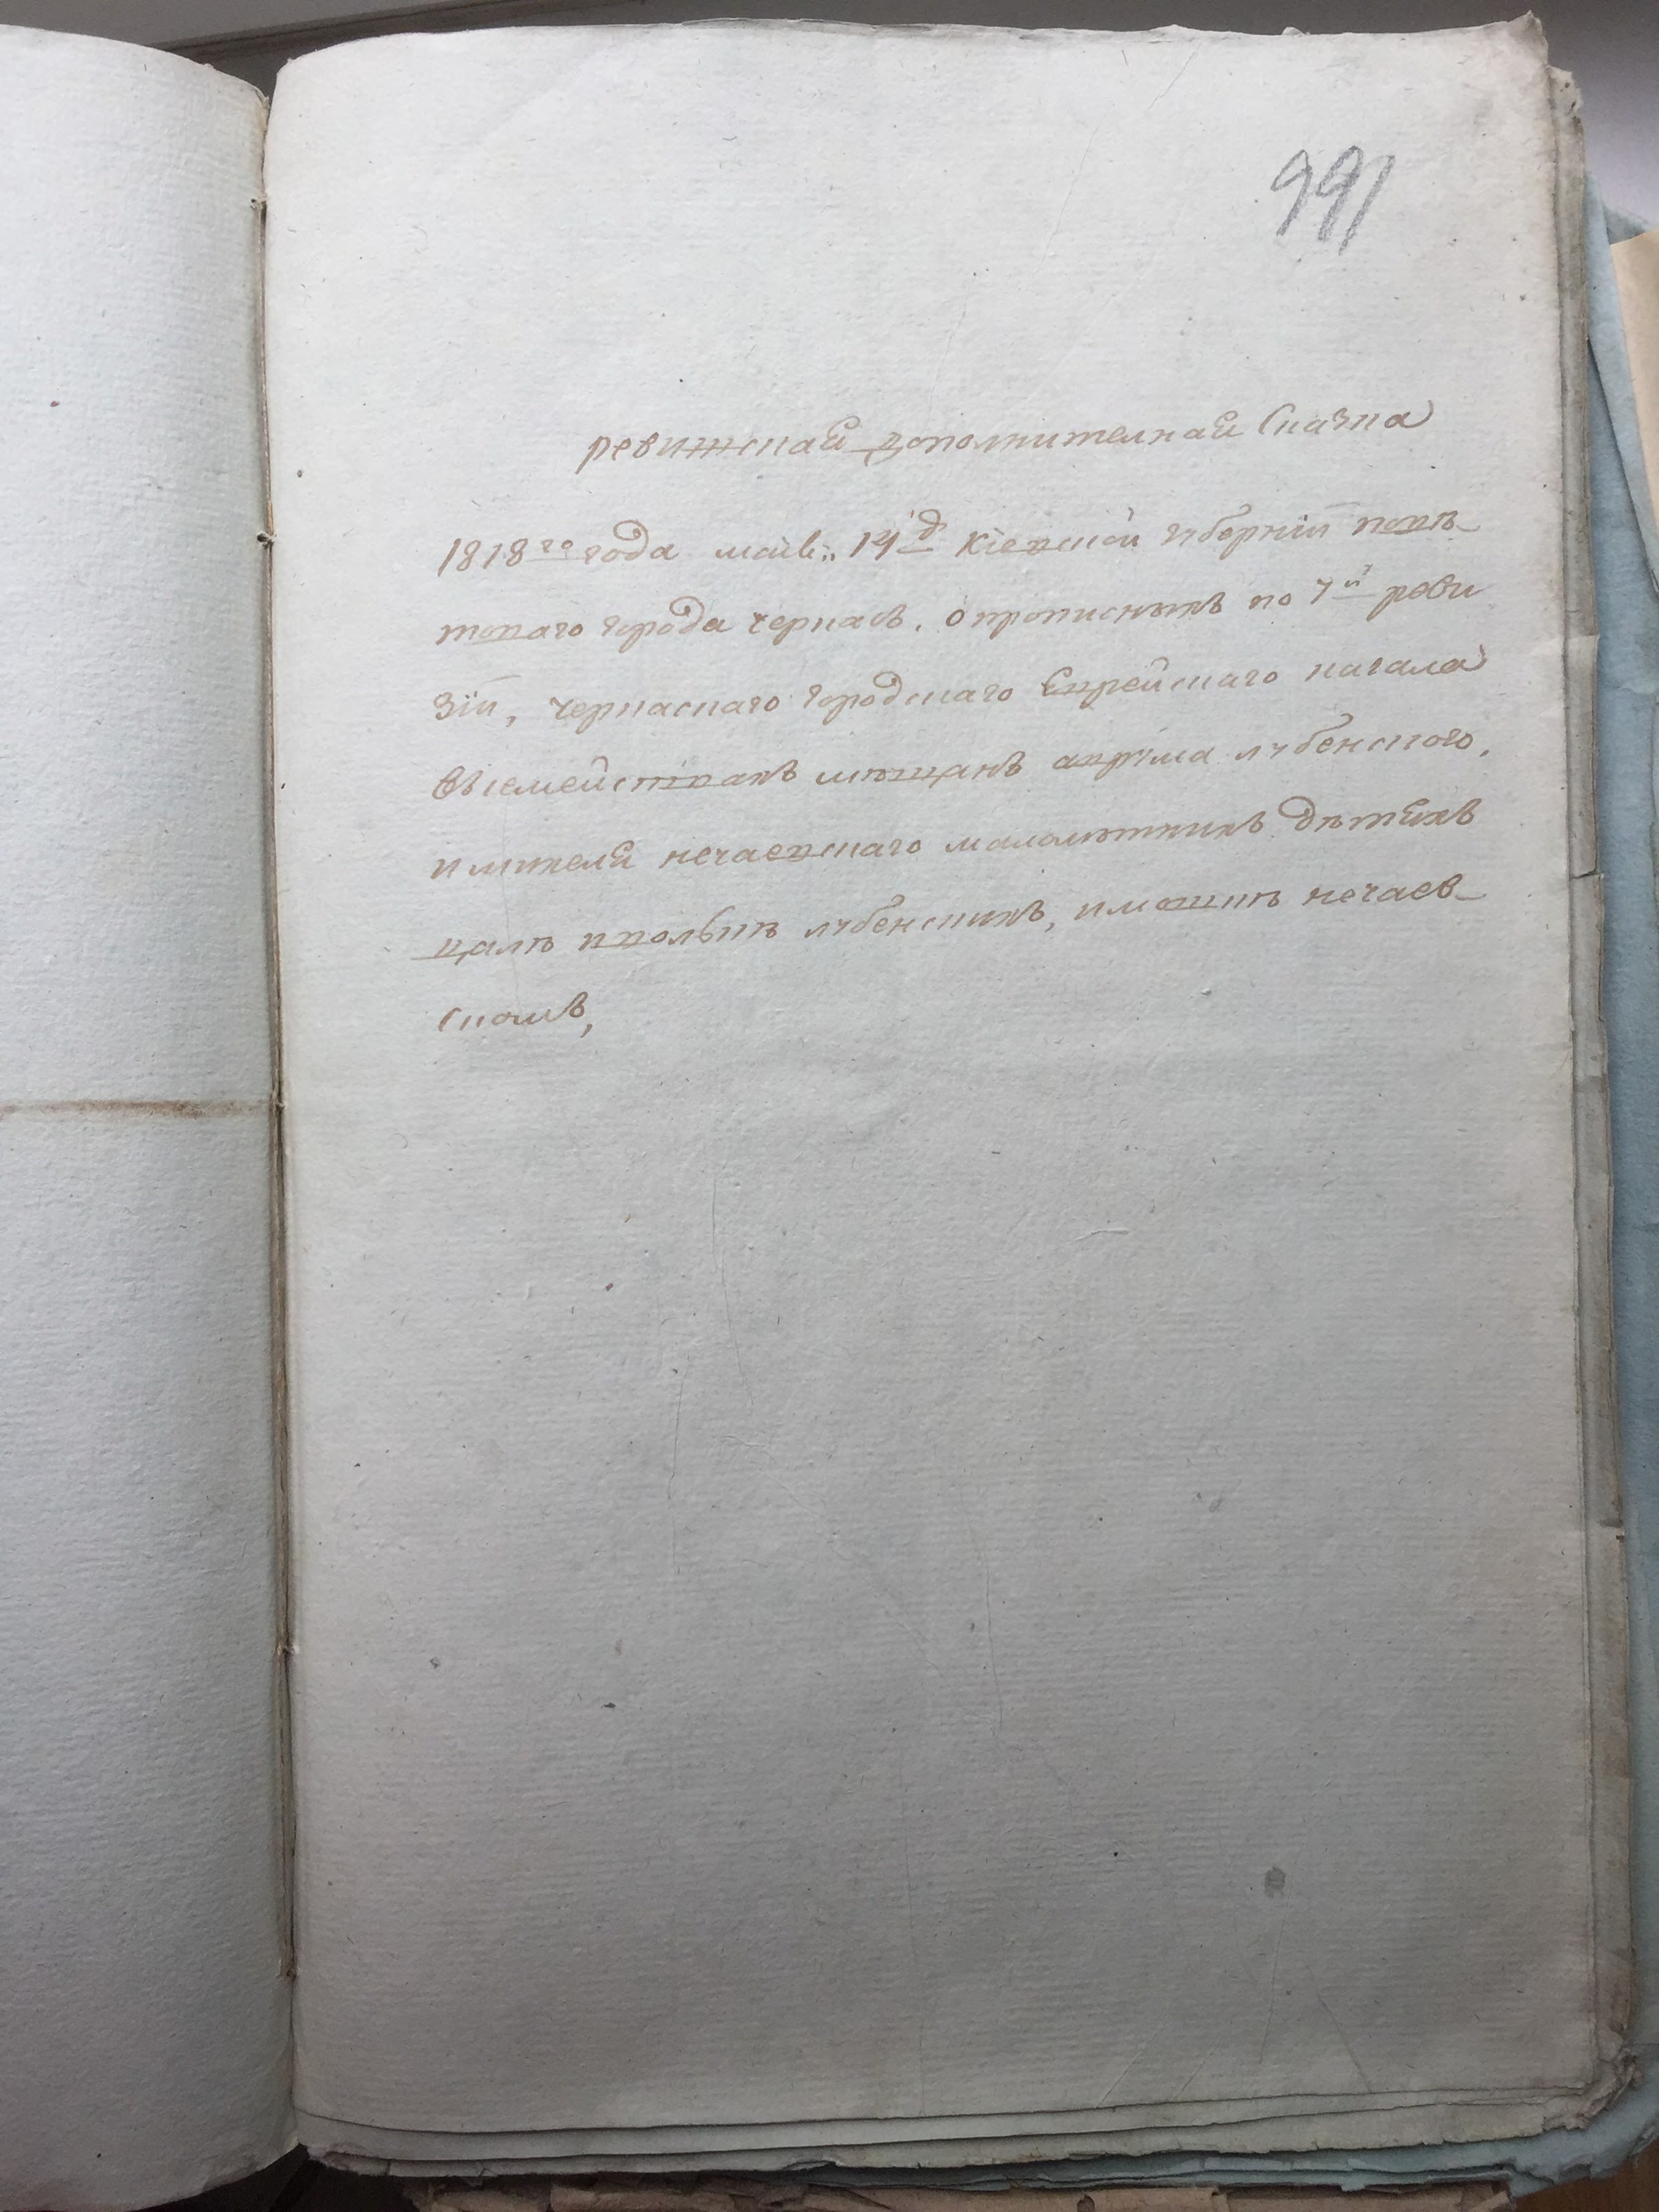 991
ревижская дополнителная Сказка
1818го года маия 14д Кіевской губерніи повѣ
товаго города черкасъ. о прописныхъ по 7й реви
зіи, черкаскаго городскаго Еврейскаго кагала
въ семействахъ мѣщанъ аврума лубенского,
и михеля нечаевскаго малолѣтнихъ дѣтяхъ
лубенскихъ, и мошкѣ нечаев
скомъ,